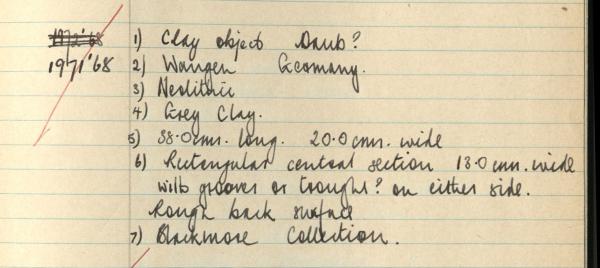 1) Clay object Daub?
1971'68 2) Wangen Germany.
3) Neolithic
4) Grey Clay.
5) 38.0cms. long. 20.0cms. wide
6) Rectangular central section 13.0cms. wide
with grooves or troughs? on either side.
Rough back surface
7) Blackmore Collection.